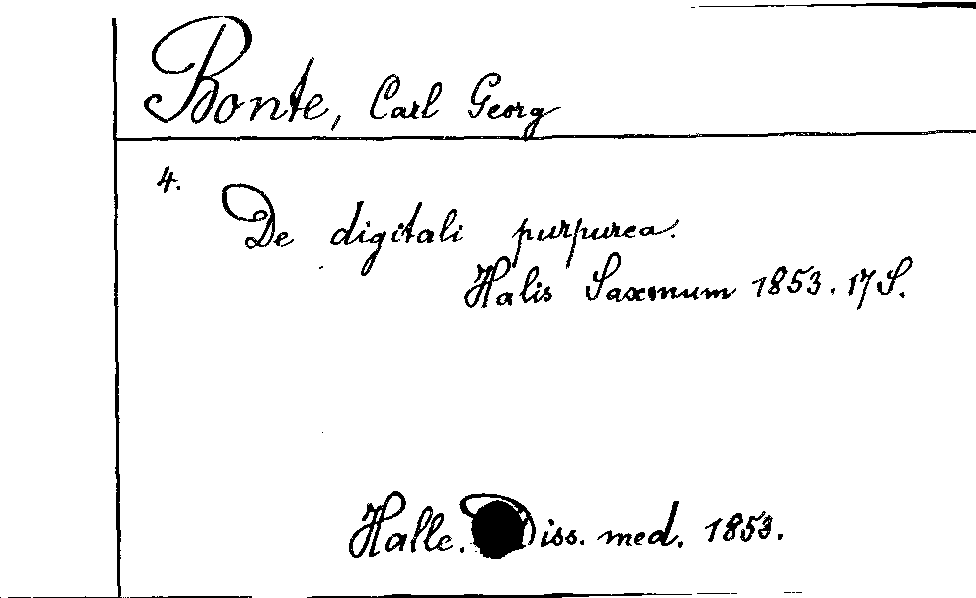 Bonte, Carl Georg
4.
De digitali purpurea.
Halis Saxmum 1853. 17 S.
Halle. Diss. med. 1853.